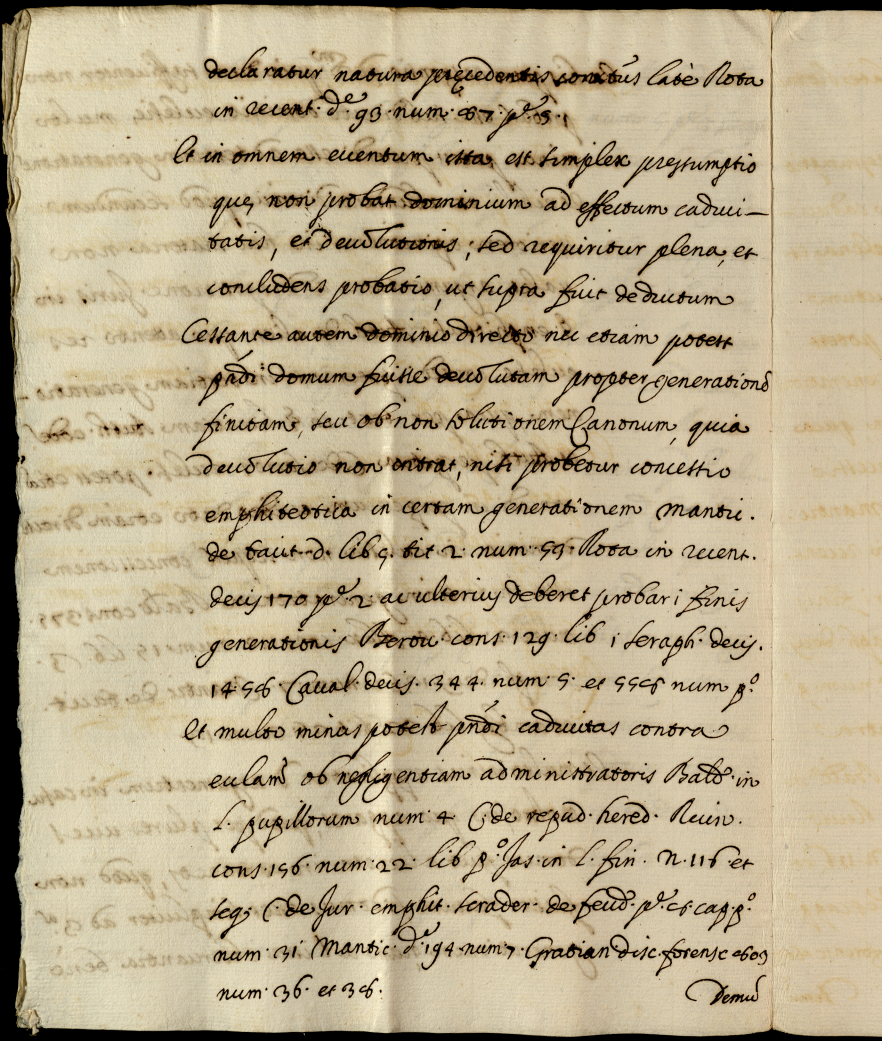 declaratur natura precedentis constitus latè Rota
in recent. d.e 93. num. 87. p.e 3.
Et in omnem euentum ista est simplex presumptio
que non probat dominium ad effectum caduci-
tatis, et deuolutionis, sed requiritur plena, et
concludens probatio, ut supra fuit deductum
Cessante autem dominio directo nec etiam potest
pñdi domum fuisse deuolutam propter generationẽ
finitam, seu ob non solutionem Canonum, quia
deuolutio non intrat, nisi probetur concessio
emphiteotica in certam generationem Mantic.
de tacit. d. lib 5. tit 2. num. 53. Rota in recent.
decis 170 p.e 2. ac ulterius deberet probari finis
generationis Berou. cons. 129. lib 1 Seraph. decis.
1458. Caual. decis. 344. num. 5. et 558 num p.o
Et multo minus potest pñdi caducitas contra
eclam̃ ob negligentiam administratoris Bald. in
L. pupillorum num. 4 C. de repud. hered. Ruin.
cons. 156. num. 22. lib p.o Jas. in l. fin. n. 116 et
seq. C. de Jur. emphit. Scrader. de feud. p.e 8 cap. p.o
num. 31. Mantic. d.e 194. num. 7. Gratian disc. forens c 609
num. 36. et 38.
Demũ